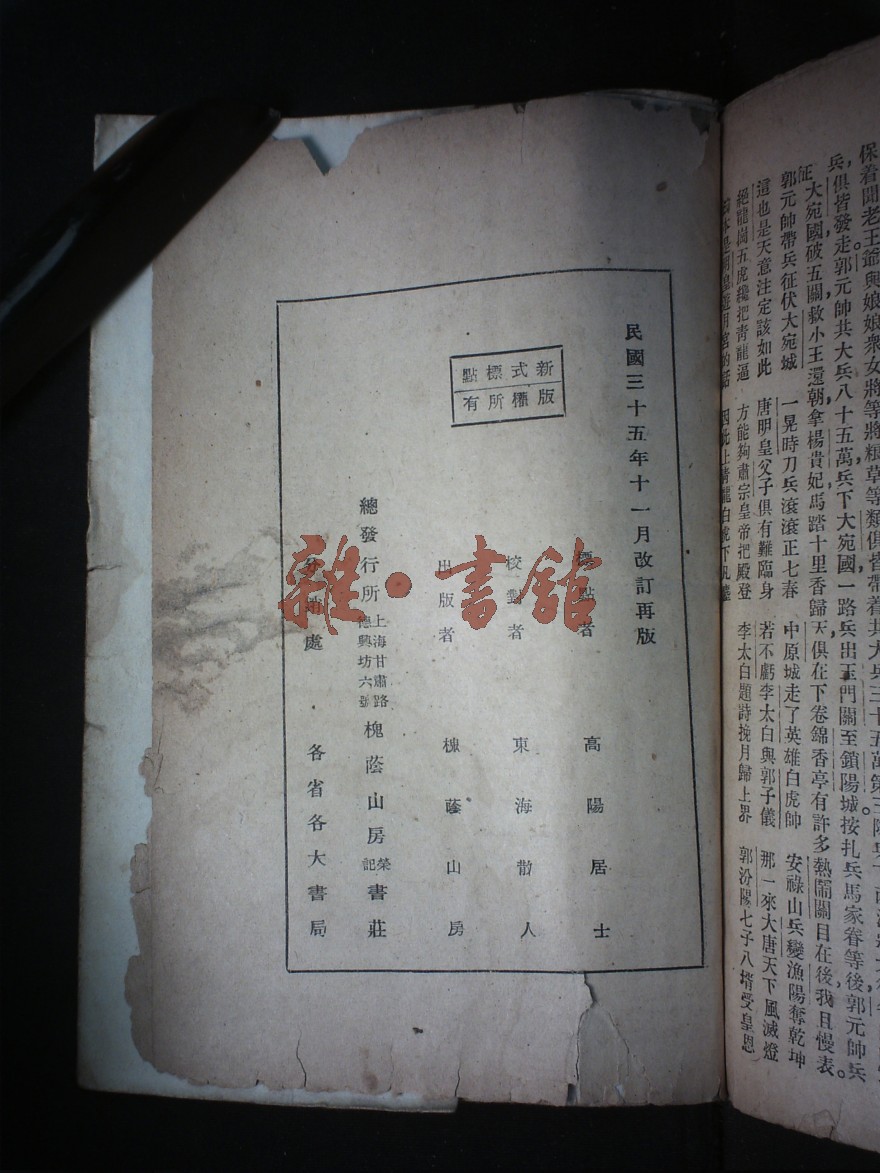 保着聞老王爺與娘娘衆女將等將粮草等類俱皆帶着共大兵三十五萬第三隊
兵,俱皆發走。郭元帥共大兵八十五萬兵下大宛國,一路兵出玉門關至鎖陽城。按扎兵馬家眷等後郭元帥兵
征大宛國破五關救小王還朝,拿楊貴妃馬踏十里香歸天,俱在下卷錦香亭有許多熱鬧關目在後,我且慢表。
郭元帥帶兵征伏大宛城 一晃時刀兵滾滾正七春 中原城走了英雄白虎帥 安祿山兵變漁陽奪乾坤
這也是天意注定該如此 唐明皇父子俱有難臨身 若不虧李太白與郭子儀 那一來大唐天下風滅燈
絕龍崗五虎纔把青龍逼 方能夠肅宗皇帝把殿登 李太白題詩挽月歸上界 郭汾陽七子八壻受皇恩
明皇遊月宮的話 因此上青龍白虎下凡塵
民國三十五年十一月改訂再版
新式標點
版權所有
標點者 高陽居士
校對者 東海散人
出版者 槐蔭山房
總發行所 上海甘肅路德興坊六號 槐蔭山房榮記書莊
分銷處 各省各大書局
雜·書館